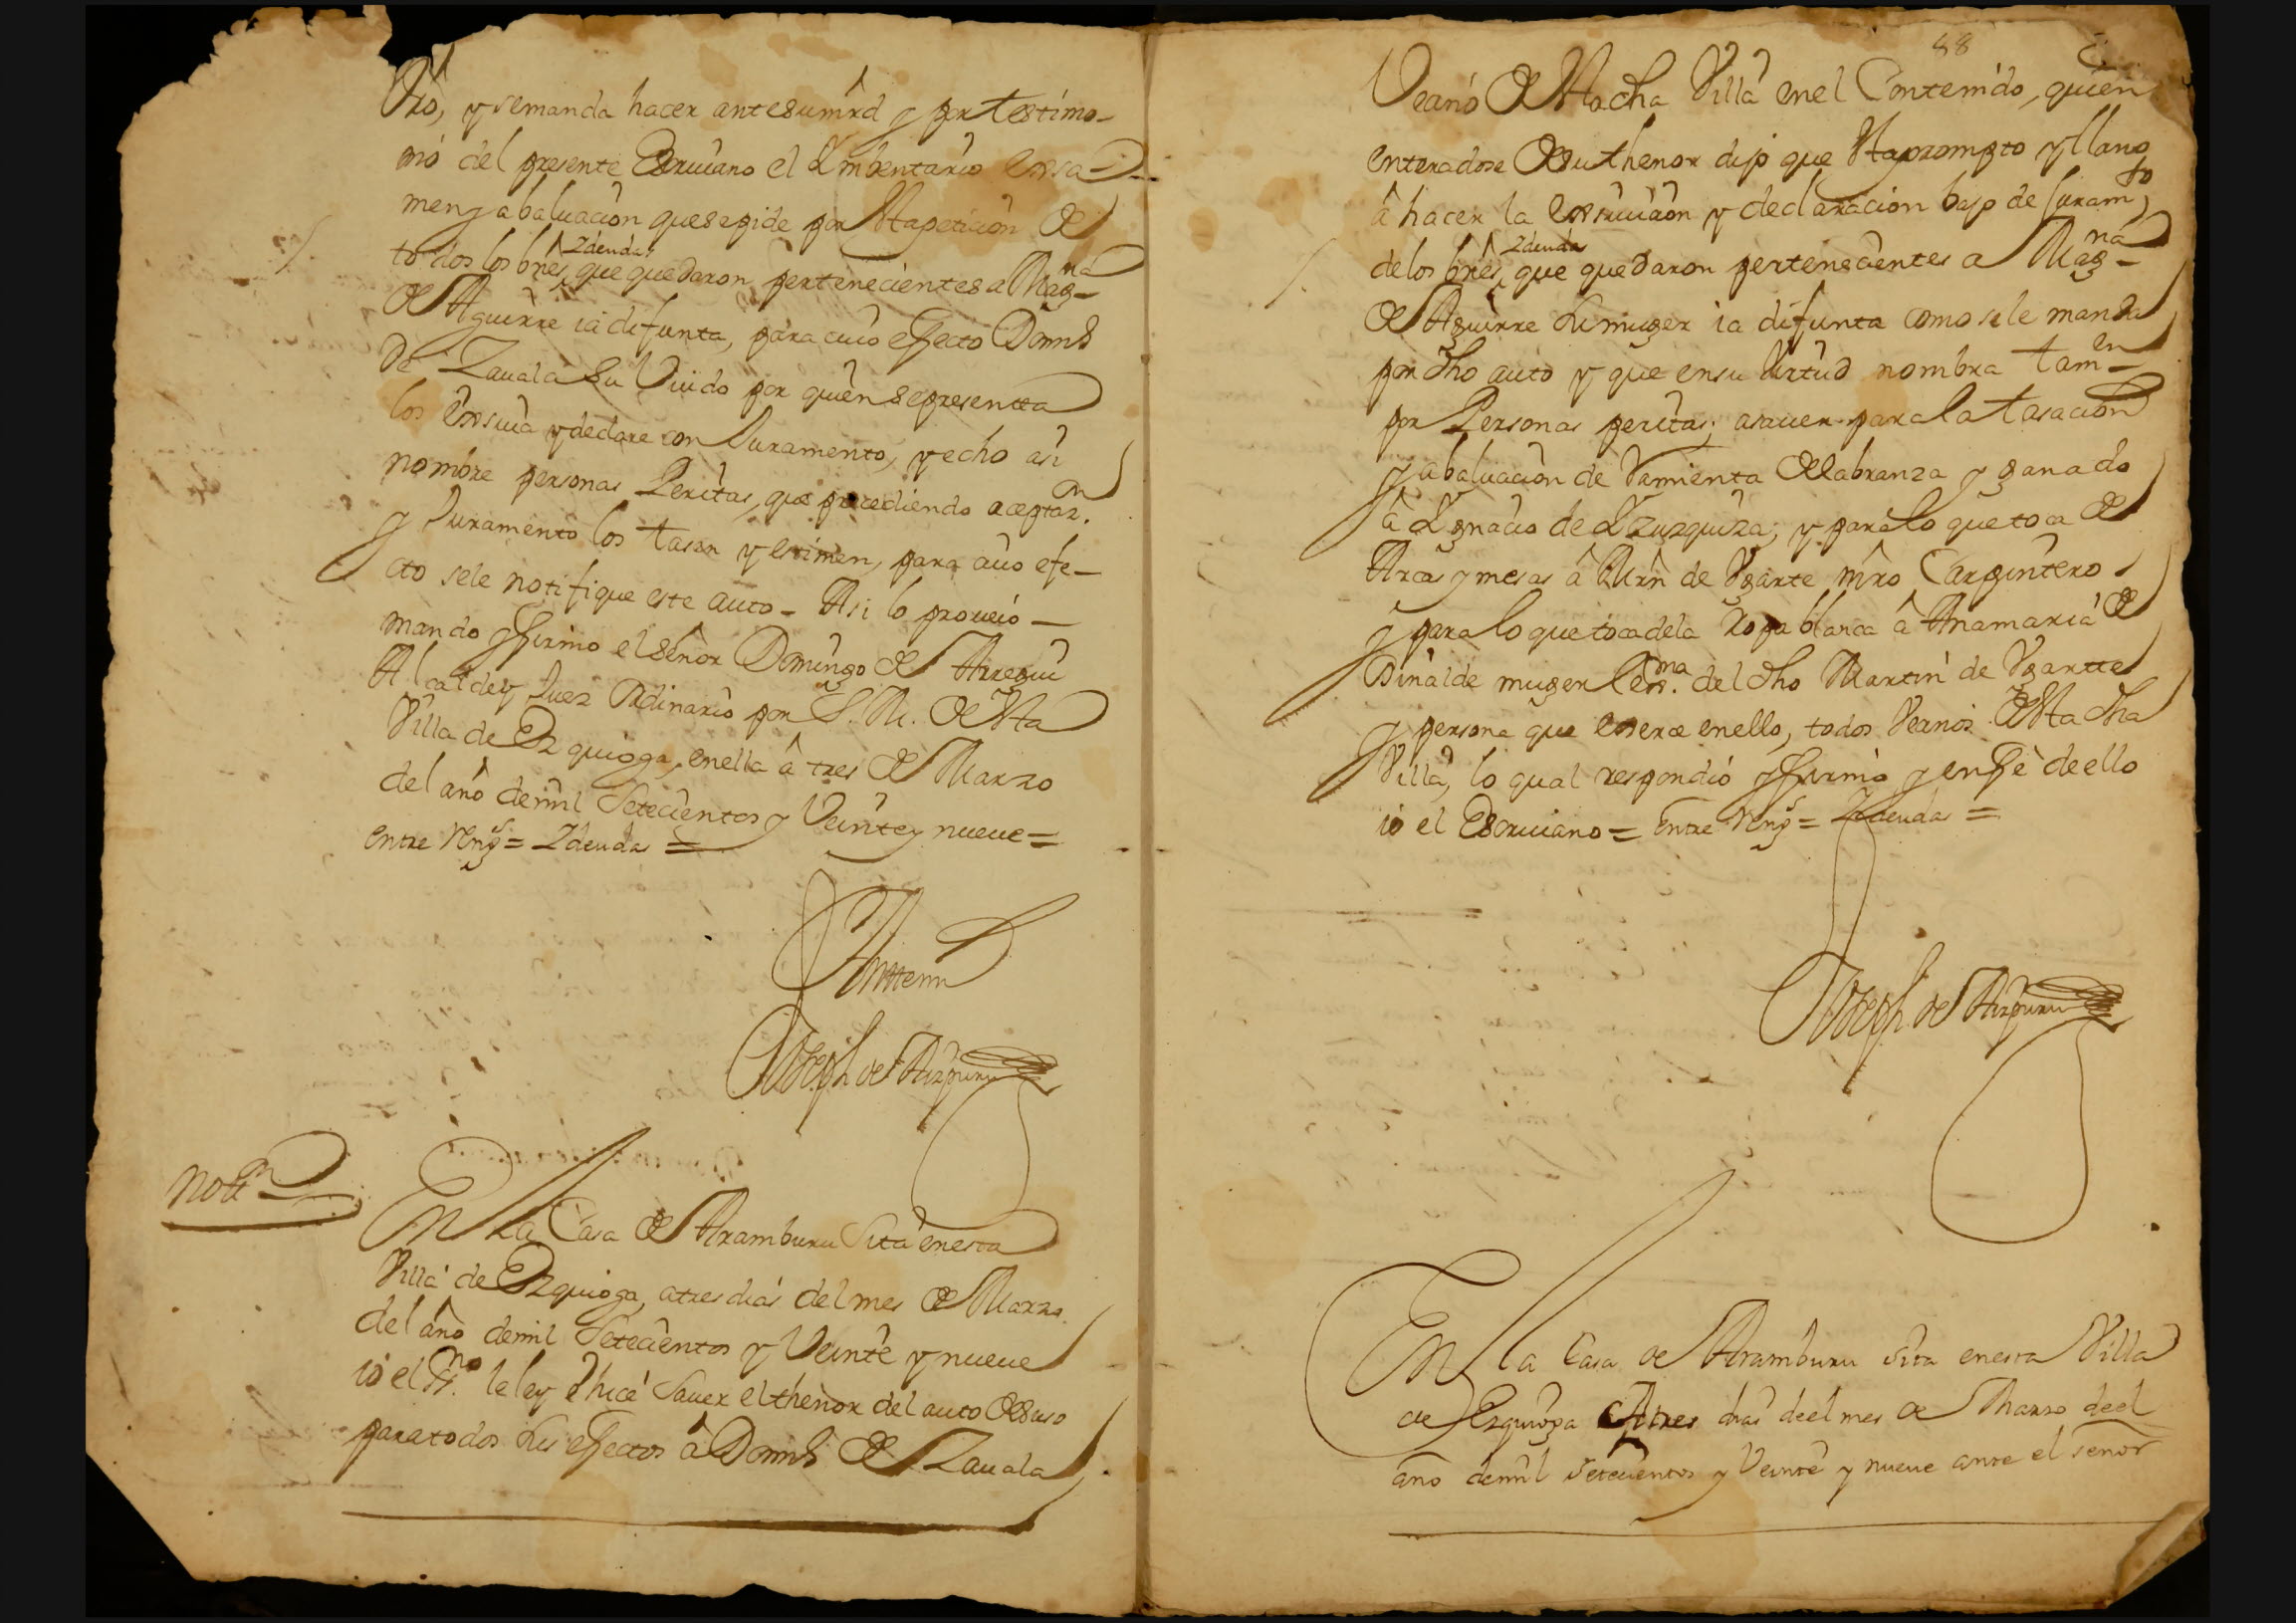 y semanda hacer antesumrd y por testimo-
nio del presente Escriuano el Ymbentario exsa-
men y abaluacion quesepide por esta peticion de
todos los bnēs, y deudas que quedaron pertenecientes a Mag.na
de Aguirre ia difunta, para cuio effecto Dom.s
de Zauala su Viudo por quien sepresentta
los exsiua y declare con Juramento, y echo asi
nombre personas Peritas, que precediendo aceptaz.on
y Juramento los tasen y estimen, para cuio efe-
cto sele notifique este auto - Asi lo proueio -
mando y firmo el señor Domingo de Arregui
Alcalde y Juez Ordinario por S. M. de esta
Villa de Ezquioga, enella â tres de Marzo
del año de mil Setecientos y Veinte y nueue =
entre Reng.s = Y deudas =
Antemi
Joseph de Aizpuru
Nott.n
En la Casa de Aramburu Sita enesta
Villa de Ezquioga, atres dias del mes de Marzo
del año demil Setecientos y Veinte y nueue
io el ss.no le ley e hice Sauer el thenor del auto desuso
paratodos sus effectos â Dom.s de Zauala
88
Vecino de esta dha Villa enel Contenido, quien
enteradose desu thenor dijo que esta prompto y llano
â hacer la exsiuicion y declaracion bajo de Juram.to
delos bnēs, y deudas que quedaron pertenecientes a Mag.na
de Aguirre su muger ia difunta como sele manda
por dho auto y que ensu Virtud nombra tam.en
por Personas peritas; asauer para la tasacion
y abaluacion de Vamienta de labranza y ganado
â Ygnacio de Yzuzquiza; y para lo que toca de
Arcas y mesas â Mrn de Vgarte mro Carpintero
y para lo que toca dela Ropa blanca â Anamaria de
muger lex.ma del dho Martin de Vgartte
y persona que enella, todos Vecinos de esta dha
Villa, lo qual respondio y firmo y enfee de ello
io el Escriuano = Entre Reng.s = Y deudas =
Joseph de Aizpuru
En la Casa de Aramburu sita enesta Villa
de Ezquioga A tres dias deel mes de Marzo deel
año demil setecientos y Veinte y nueue ante el señor